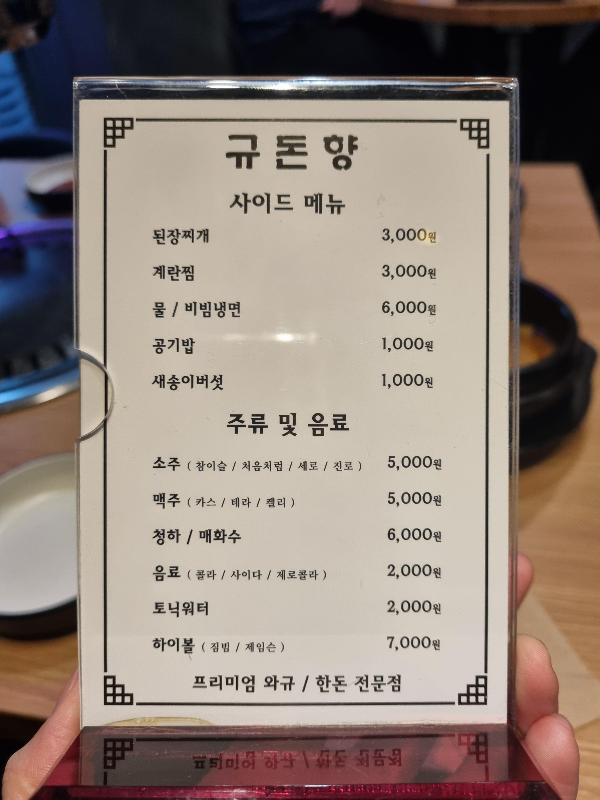 규돈향
사이드 메뉴
된장찌개 3,000원
계란찜 3,000원
물 / 비빔냉면 6,000원
공기밥 1,000원
새송이버섯 1,000원
주류 및 음료
소주 ( 참이슬 / 처음처럼 / 세로 / 진로 ) 5,000원
맥주 ( 카스 / 테라 / 켈리 ) 5,000원
청하 / 매화수 6,000원
음료 ( 콜라 / 사이다 / 제로콜라 ) 2,000원
토닉워터 2,000원
하이볼 ( 짐빔 / 제임슨 ) 7,000원
프리미엄 와규 / 한돈 전문점